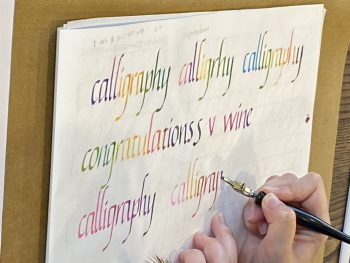 calligraphy calligrhy calligraphy
congratulationss v wine
calligraphy calligrap